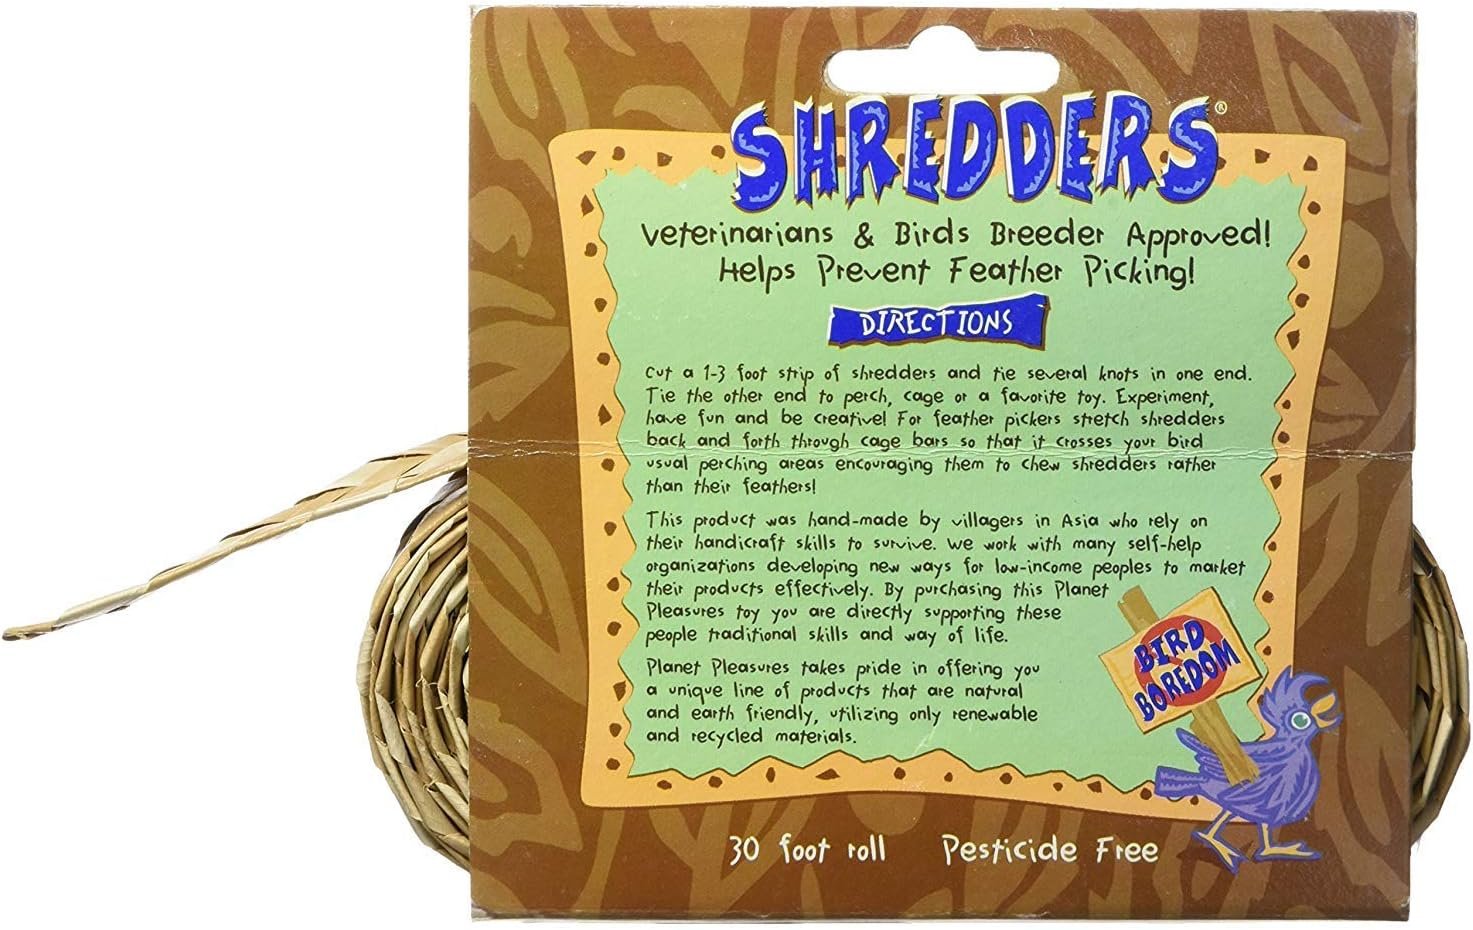 SHREDDERS®
Veterinarians & Birds Breeder Approved!
Helps Prevent Feather Picking!
DIRECTIONS
Cut a 1-3 foot strip of shredders and tie several knots in one end.
Tie the other end to perch, cage or a favorite toy. Experiment,
have fun and be creative! For feather pickers stretch shredders
back and forth through cage bars so that it crosses your bird
usual perching areas encouraging them to chew shredders rather
than their feathers!
This product was hand-made by villagers in Asia who rely on
their handicraft skills to survive. We work with many self-help
organizations developing new ways for low-income peoples to market
their products effectively. By purchasing this Planet
Pleasures toy you are directly supporting these
people traditional skills and way of life.
Planet Pleasures takes pride in offering you
a unique line of products that are natural
and earth friendly, utilizing only renewable
and recycled materials.
BIRD
BOREDOM
30 foot roll Pesticide Free